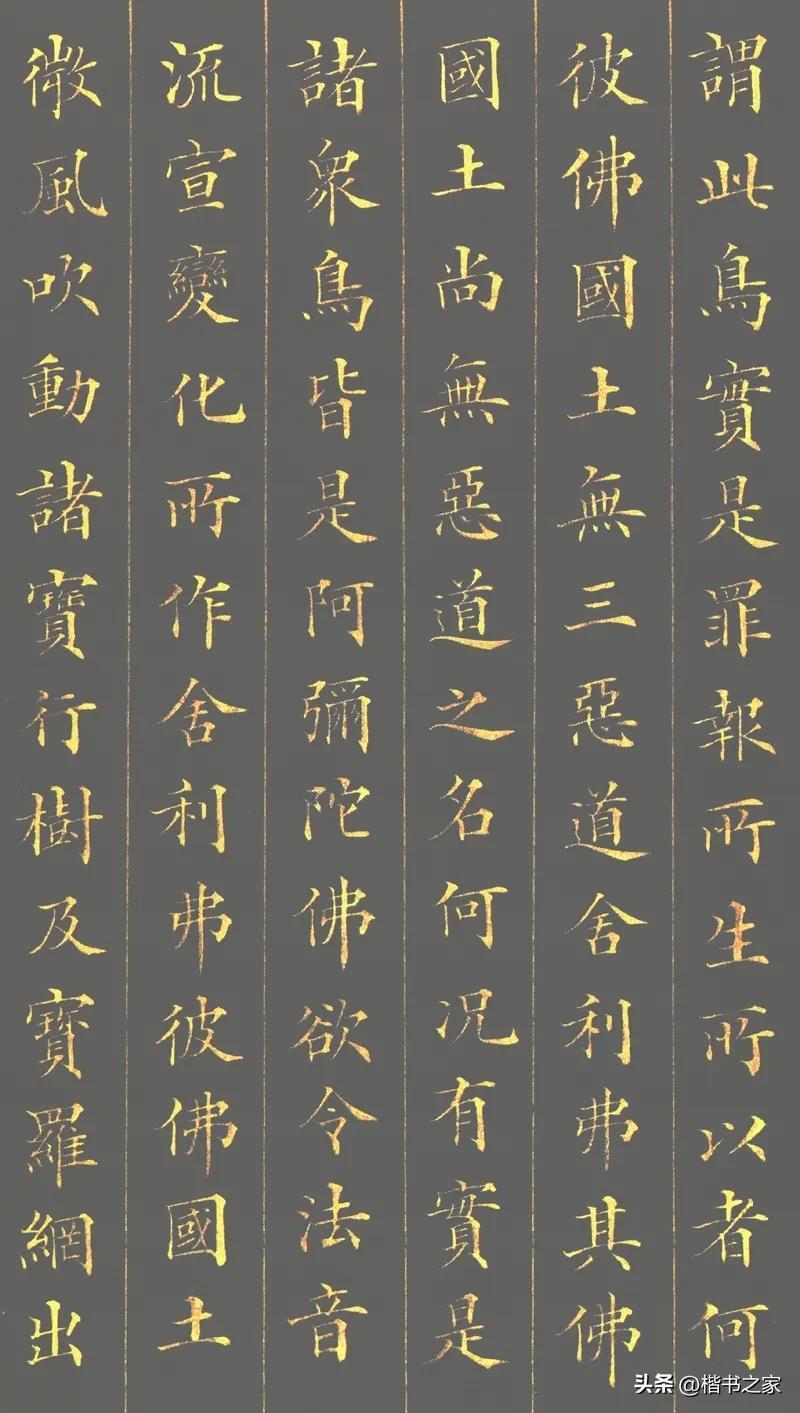 謂此鳥實是罪報所生所以者何
彼佛國土無三惡道舍利弗其佛
國土尚無惡道之名何況有實是
諸衆鳥皆是阿彌陀佛欲令法音
流宣變化所作舍利弗彼佛國土
微風吹動諸寶行樹及寶羅網出
头条 @楷书之家